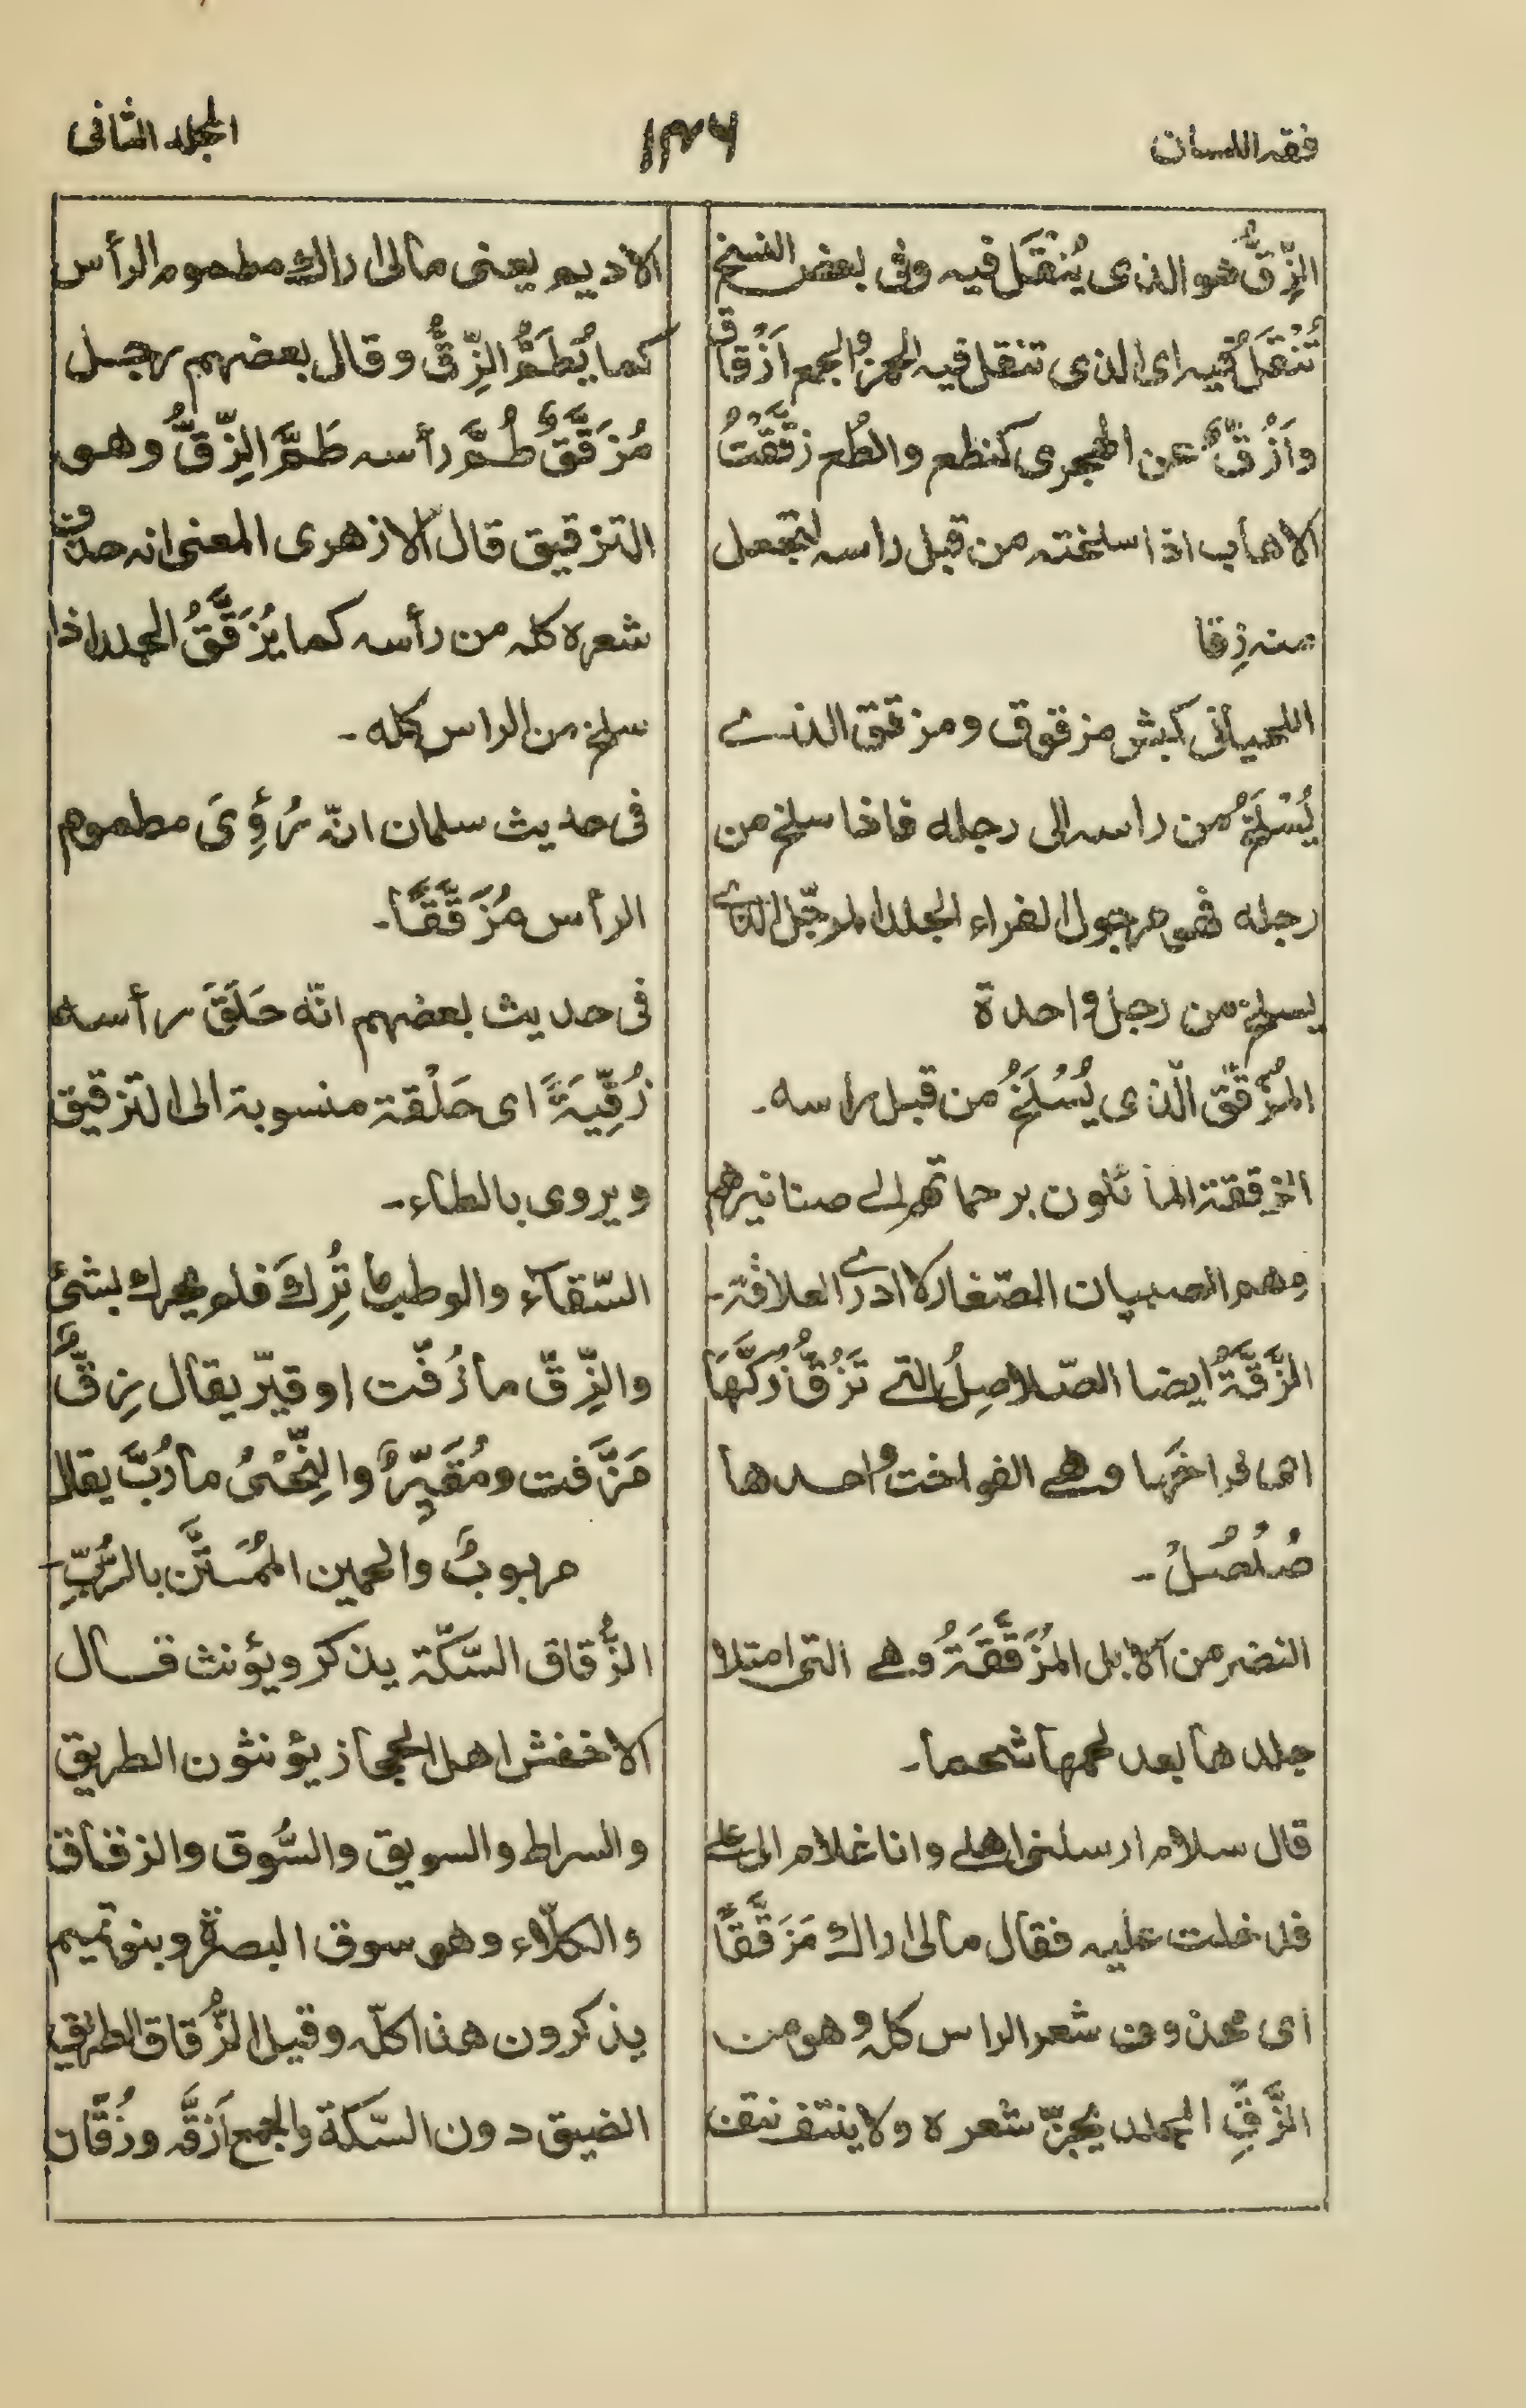 فقه اللسان
١٣٦
المجلد الثانى
الزِّقُّ هو الذى يُنْقَلُ فيه وفى بعض النسخ
تُنْقَلُ فيه اى الذى تنقل فيه الخمر والجمع اَزْقاق
واَزُقٌّ عن الهجرى كنطع وانطُع زَقَّقْتُ
الاهاب اذا سلخته من قبل راسه لتجعل
منه زِقا
اللحيانى كبش مزقوق ومزقق الذے
يُسْلَخُ من راسه الى رجله فاذا سلخ من
رجله فهو مرجول الفراء الجلد المرجّل الذے
يسلخ من رجل واحدة
المُزَقَّق الّذى يُسْلَخُ من قبل راسه۔
الزققة المائلون برحماتهم الے صنانيرهم
وهم الصبيان الصّغار لا ادرے العلاقة۔
الزَّقَّةُ ايضا الصّلاصِلُ التے تَزُقُّ زُكَّهَا
اى فراخَها وهے الفواخت واحدها
صُلْصُلُ۔
النضر من الابل المُزَقَّقَةُ وهے التى امتلا
جلدها بعد لحمها شحما۔
قال سلام ارسلنى اهلے وانا غلام الى علے
فدخلت عليه فقال مالى اراك مَزَقَّقًا
اى محذوف شعر الراس كله وهو من
الزَّقِّ الجلد يُجزّ شعره ولا ينتف نتف
الاديم يعنى مالى اراك مطموم الرأس
كما يُطَمُّ الزِّقُّ وقال بعضهم رجل
مُزَقَّقٌ طُمَّ رأسه طَمَّ الزِّقِّ وهو
التزقيق قال الازهرى المعنى انه حذف
شعره كله من رأسه كما يُزَقَّقُ الجلد اذا
سلخ من الراس كله۔
فى حديث سلمان انّه رُؤِىَ مطموم
الرأس مُزَقَّقًا۔
فى حديث بعضهم انّه حَلَقَ رأسه
زُقِّيَةً اى حَلْقة منسوبة الى التزقيق
ويروى بالطاء۔
السّقاء والوطب ما تُرِكَ فلم يحرك بشئ
والزِّقّ ما زُفّت او قيّر يقال زِقٌّ
مَزَّفت ومُقَيِّرٌ والنِّحْىُ ما رُبَّ يقال
مربوبٌ والحميت المُمَتَّن بالرُّبِّ۔
الزُّقاق السّكّة يذكر ويؤنث قال
الاخفش اهل الحجاز يؤنثون الطريق
والسراط والسويق والسُّوق والزقاق
والكلّاء وهو سوق البصرة وبنو تميم
يذكرون هذا كلّه وقيل الزُّقاق الطريق
الضيق دون السّكة والجمع اَزقَّه وزُقّان